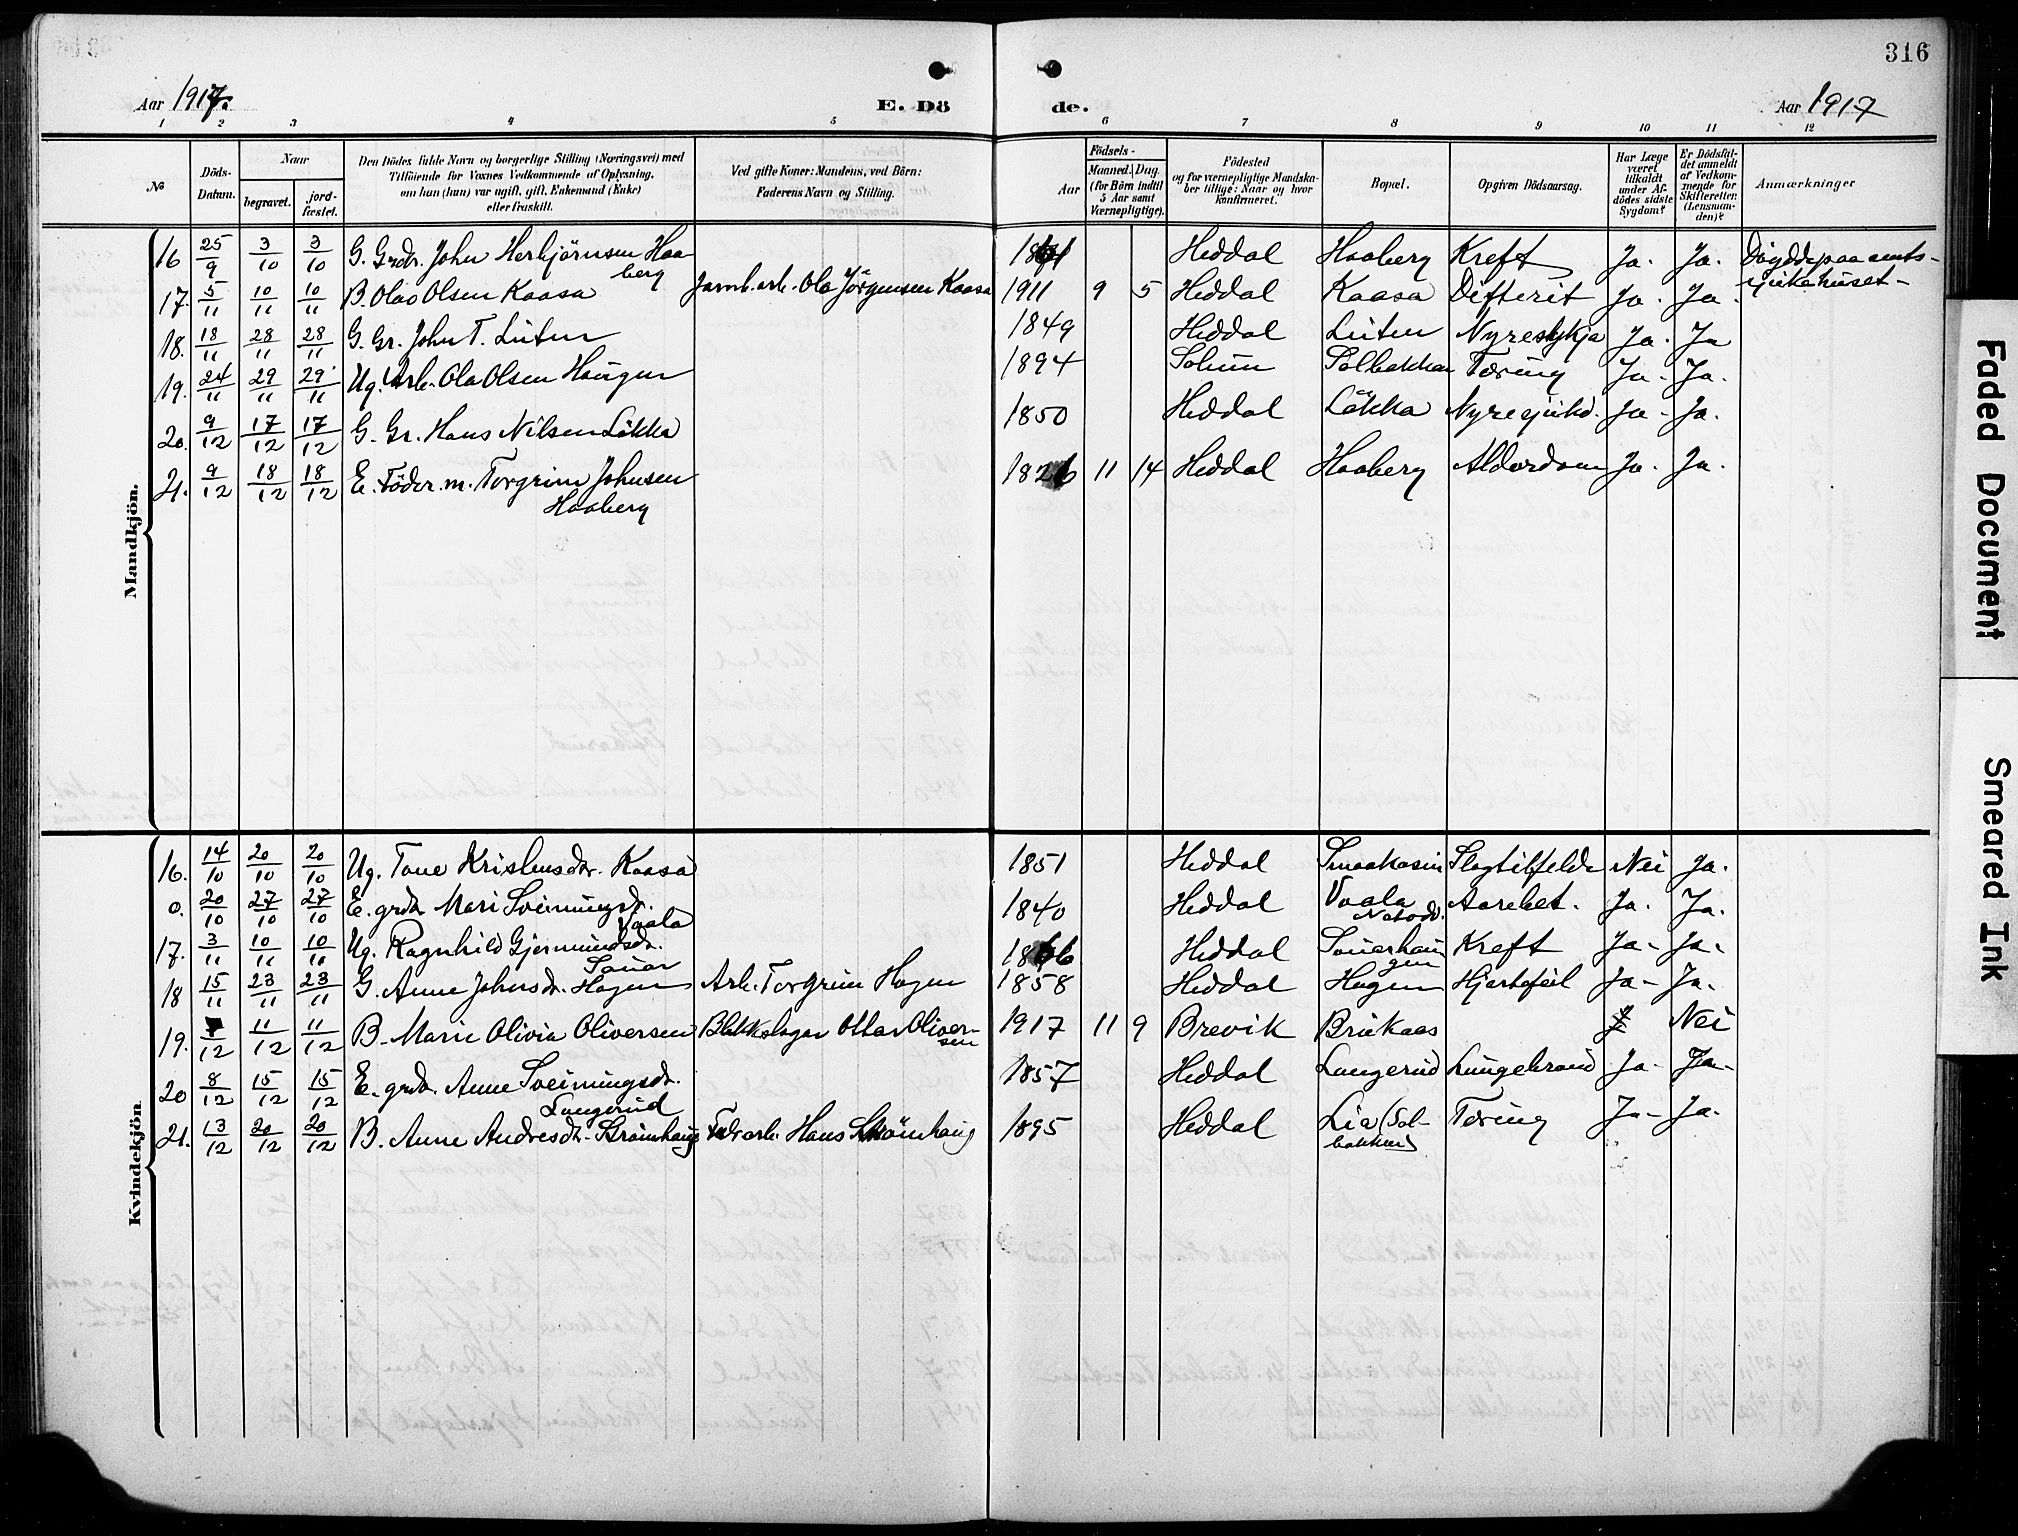 316
Aar 1917.
E. Dö
de.
Aar 1917
1 2 3 4 5 6 7 8 9 10 11 12
No
Döds-
Datum.
Naar
begravet.
jord-
fæstet.
Den Dödes fulde Navn og borgerlige Stilling (Næringsvei) med
Tilföiende for Voxnes Vedkommende af Oplysning,
om han (hun) var ugift, gift, Enkemand (Enke)
eller fraskilt.
Ved gifte Koner: Mandens, ved Börn:
Faderens Navn og Stilling.
Födsels-
Aar
Maaned. Dag.
(for Börn indtil
5 Aar samt
Værnepligtige).
Födested
og for værnepligtige Mandska-
ber tillige: Naar og hvor
konfirmeret.
Bopæl.
Opgiven Dödsaarsag.
Har Læge
været
tilkaldt
under Af-
dödes sidste
Sygdom?
Er Dödsfal-
det anmeldt
af Vedkom-
mende for
Skifteretten
(Lensman-
den)?
Anmærkninger
Mandkjön.
16 25/9 3/10 3/10 G. Grdr. John Herbjörnsen Haa- Heddal Haaberg Kreft Ja. Ja. Döydde paa amts-
berg sjukehuset
17. 5/11 10/11 10/11 B. Olav Olsen Kaasa Jarnb. arb. Ola Jörgensen Kaasa 1911 9 5 Heddal Kaasa Difterit Ja. Ja.
18. 18/11 28/11 28/11 G. Gr. John T. Luten 1849 Heddal Luten Nyresykja Ja. Ja
19. 24/11 29/11 29/11 Ug. Arb. Ola Olsen Haugen 1894 Solum Solbakken Tæring Ja. Ja.
20. 9/12 17/12 17/12 G. Gr. Hans Nilsen Lökka 1850 Heddal Lökka Nyresjukd. Ja. Ja.
21. 9/12 18/12 18/12 E. Föder. m. Torgrim Johnsen 1826 11 14 Heddal Haaberg Alderdom Ja. Ja.
Haaberg
Kvindekjön
16. 14/10 20/10 20/10 Ug. Tone Kristensdtr. Kaasa 1851 Heddal Slagtilfelde Nei Ja.
0. 20/10 27/10 27/10 E. grdr. Mari Sveinungsdr. 1840 Heddal Vaala Aarebet. Ja. Ja.
Vaala Notodd.
17. 3/11 10/11 10/11 Ug. Ragnhild Gjermundsdr. 1866 Heddal Sauarhau Kreft Ja. Ja.
Sauar gen
18 15/11 23/11 23/11 G. Anne Johnsdr. Hagen Arb. Torgrim Hagen 1858 Heddal Hagen Hjartefeil Ja. Ja.
19. 11/12 11/12 B. Marie Olivia Oliversen Blikkslagar Ottar Oliver- 1917 11 9 Brevik Brukaas Nei
sen
20 8/12 15/12 15/12 E. grdr. Anne Sveinungsdr. 1857 Heddal Langerud Lungebrand Ja. Ja.
Langerud
21. 13/12 20/12 20/12 B. Anne Andresdr. Strömhaug Fabr. arb. Hans Strömhaug 1895 Heddal Lia (Sol- Tæring Ja. Ja.
bakken)
Faded Document
Smeared Ink